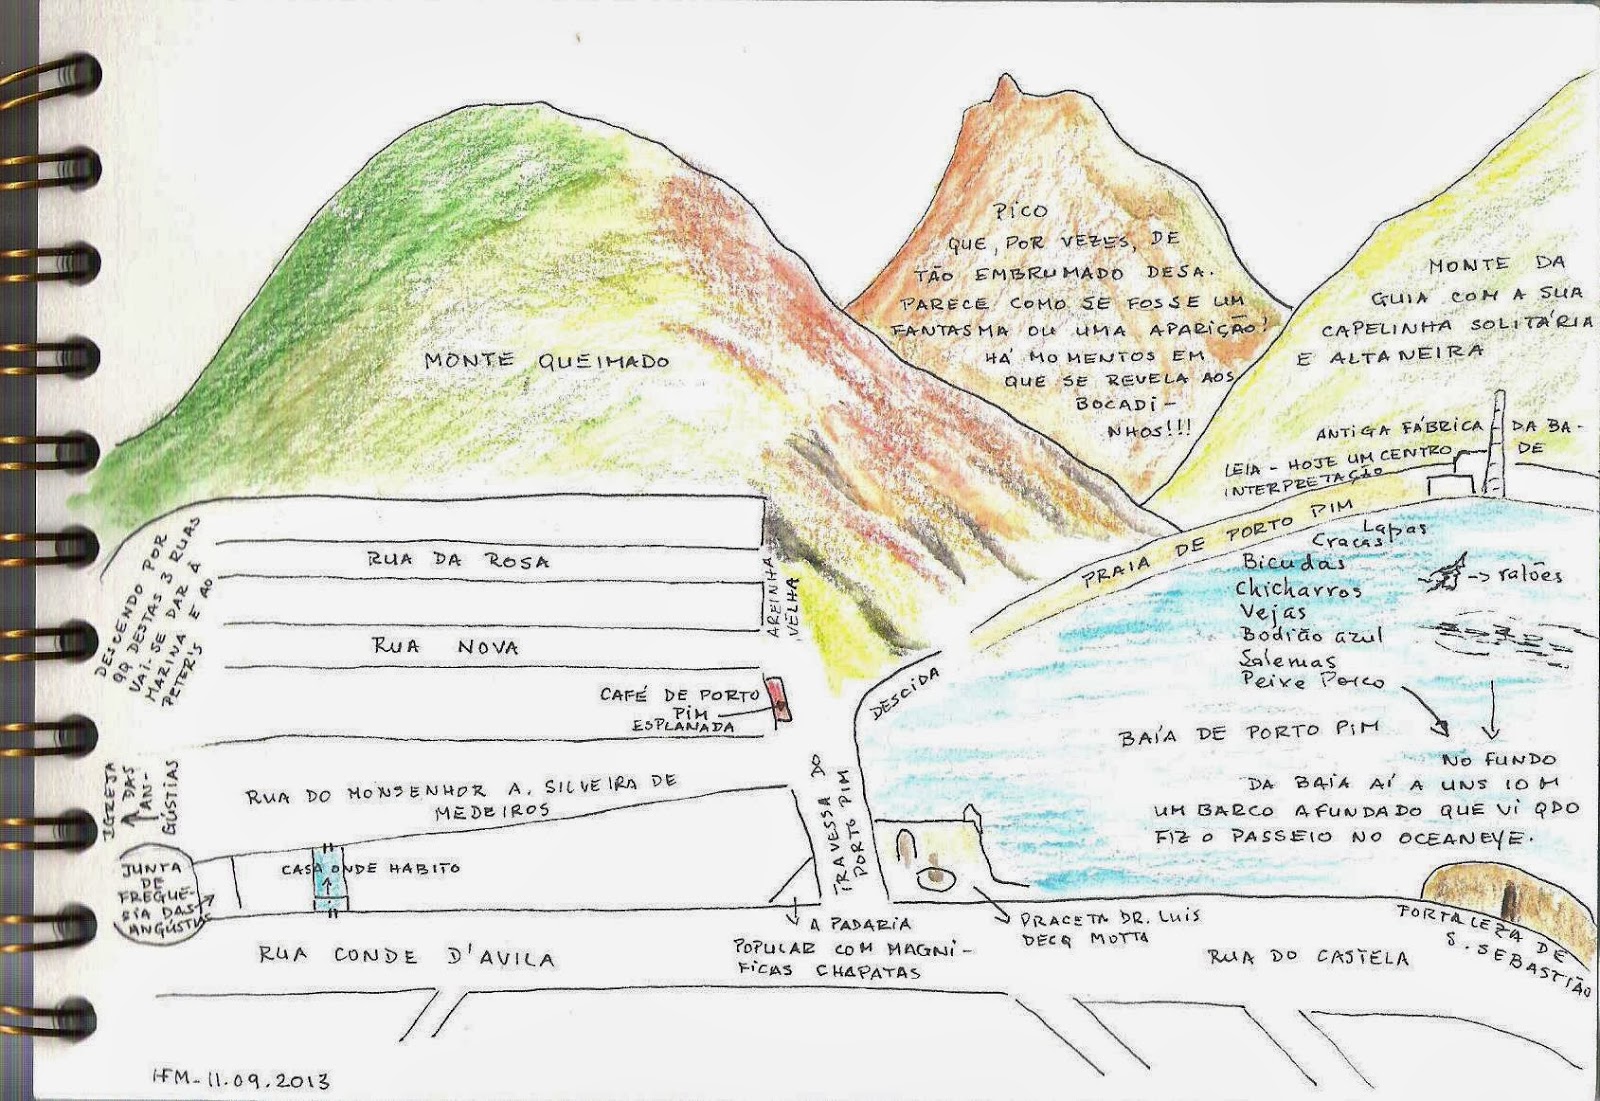 PICO
QUE, POR VEZES, DE
TÃO EMBRUMADO DESA.
PARECE COMO SE FOSSE UM
FANTASMA OU UMA APARIÇÃO!
HÁ MOMENTOS EM
QUE SE REVELA AOS
BOCADI-
NHOS!!!
MONTE QUEIMADO
MONTE DA
GUIA COM A SUA
CAPELINHA SOLITÁRIA
E ALTANEIRA
ANTIGA FÁBRICA DA BA-
LEIA - HOJE UM CENTRO DE
INTERPRETAÇÃO
PRAIA DE PORTO PIM
Lapas
Cracas
Bicudas
Chicharros
Vejas
Bodião azul
Salemas
Peixe Porco
-> ratões
BAÍA DE PORTO PIM
NO FUNDO
DA BAÍA AÍ A UNS 10 M
UM BARCO AFUNDADO QUE VI QDO
FIZ O PASSEIO NO OCEANEYE.
DESCENDO POR
QQ DESTAS 3 RUAS
VAI-SE DAR À
MARINA E AO
PETERIS
RUA DA ROSA
AREINHA
VELHA
RUA NOVA
CAFÉ DE PORTO
PIM
ESPLANADA
DESCIDA
IGREJA
DAS
AN-
GÚSTIAS
RUA DO MONSENHOR A. SILVEIRA DE
MEDEIROS
TRAVESSA DO
PORTO PIM
JUNTA
DE
FREGUE-
SIA DAS
ANGÚSTIAS
CASA ONDE HABITO
A PADARIA
POPULAR COM MAGNI-
FICAS CHAPATAS
PRACETA DR. LUIS
DECQ MOTTA
FORTALEZA DE
S. SEBASTIÃO
RUA CONDE D'AVILA
RUA DO CASTELA
HFM-11.09.2013